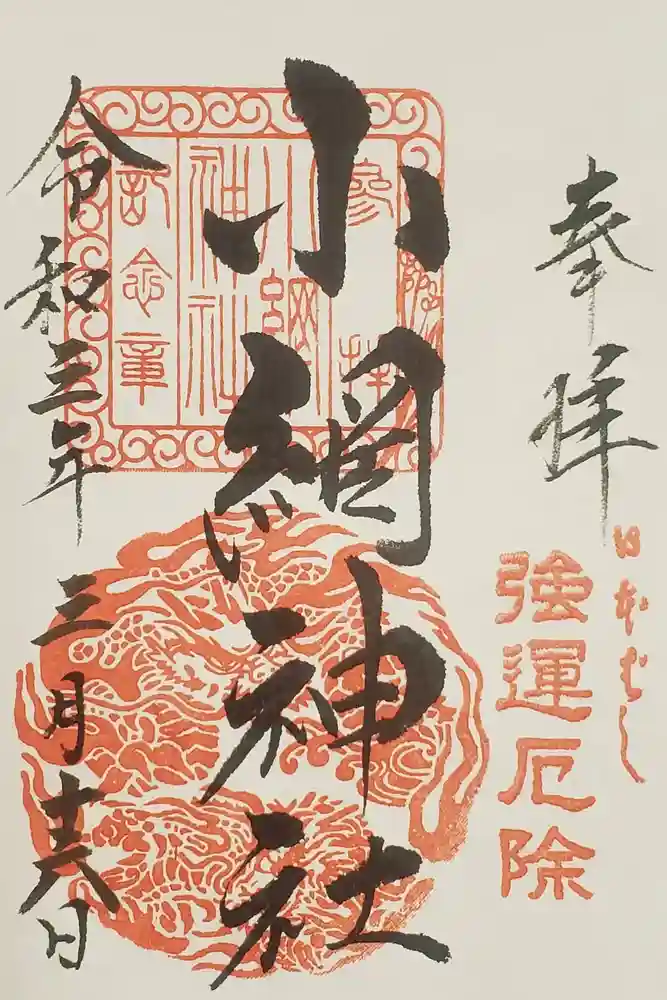 奉拝
日本ばし
強運厄除
小網神社
參拝
小網
神社
記念章
令和三年三月十六日